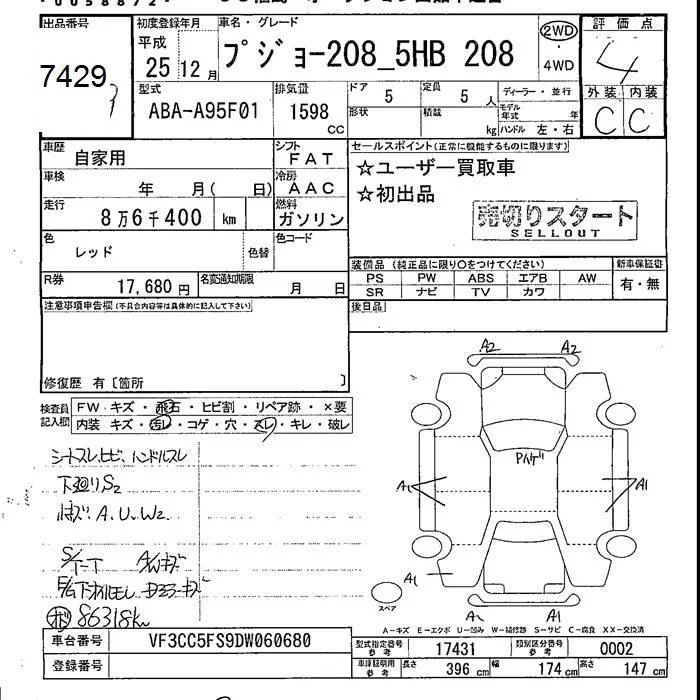 出品番号
7429
初度登録年月
平成
25 12月
車名・グレード
プジョー208_5HB 208
2WD
・
4WD
評価点
4
外装 内装
C C
型式
ABA-A95F01
排気量
1598
CC
ドア
5
定員
5人
形状
積載
kg
ディーラー・並行
モデル年式 年
ハンドル 左・右
車歴
自家用
シフト
FAT
車検
年 月( 日)
冷房
AAC
走行
8万6千400 km
燃料
ガソリン
色
レッド
色替
色コード
R券
17,680円
名変通知期限
月 日
セールスポイント(正常に機能するものに限ります)
☆ユーザー買取車
☆初出品
売切りスタート
SELLOUT
装備品 (純正品に限り○をつけてください)
新車保証書
PS PW ABS エアB AW
SR ナビ TV カワ
有・無
後日品
注意事項申告欄(不具合内容等は具体的に記入して下さい)
修復歴 有〔箇所 〕
検査員記入欄
FW キズ・飛石・ヒビ割・リペア跡・×要
内装 キズ・汚レ・コゲ・穴・スレ・キレ・破レ
シートスレ、ヒビ、ハンドルスレ
下廻りS2
A.U.W2
86318km
A2 A2
A1 A1
A1
A2 A1
スペア
A-キズ E-エクボ U-凹み W-補修跡 S-サビ C-腐食 XX-交換済
車台番号
VF3CC5FS9DW060680
登録番号
型式指定番号 参考
17431
類別区分番号 参考
0002
車庫証明用 参考
長さ 396 cm
幅 174 cm
高さ 147 cm